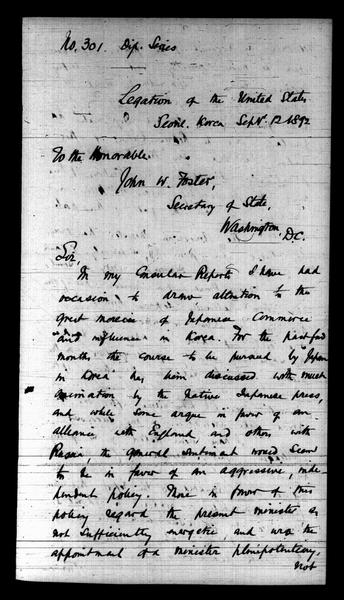 No. 301. Dip. Series
Legation of the United States
Seoul, Korea Sept. 12 1892
To the Honorable
John W. Foster,
Secretary of State,
Washington, D.C.
Sir,
In my Consular Reports I have had
occasion to draw attention to the
great increase of Japanese Commerce
and influence in Korea. For the past few
months the course to be pursued by Japan
in Korea has been discussed with much
animation by the Native Japanese press,
and while some argue in favor of an
alliance with England and others with
Russia, the general sentiment would seem
to be in favor of an aggressive, inde-
pendent policy. Those in favor of this
policy regard the present minister as
not sufficiently energetic, and urge the
appointment of a minister plenipotentiary,
not